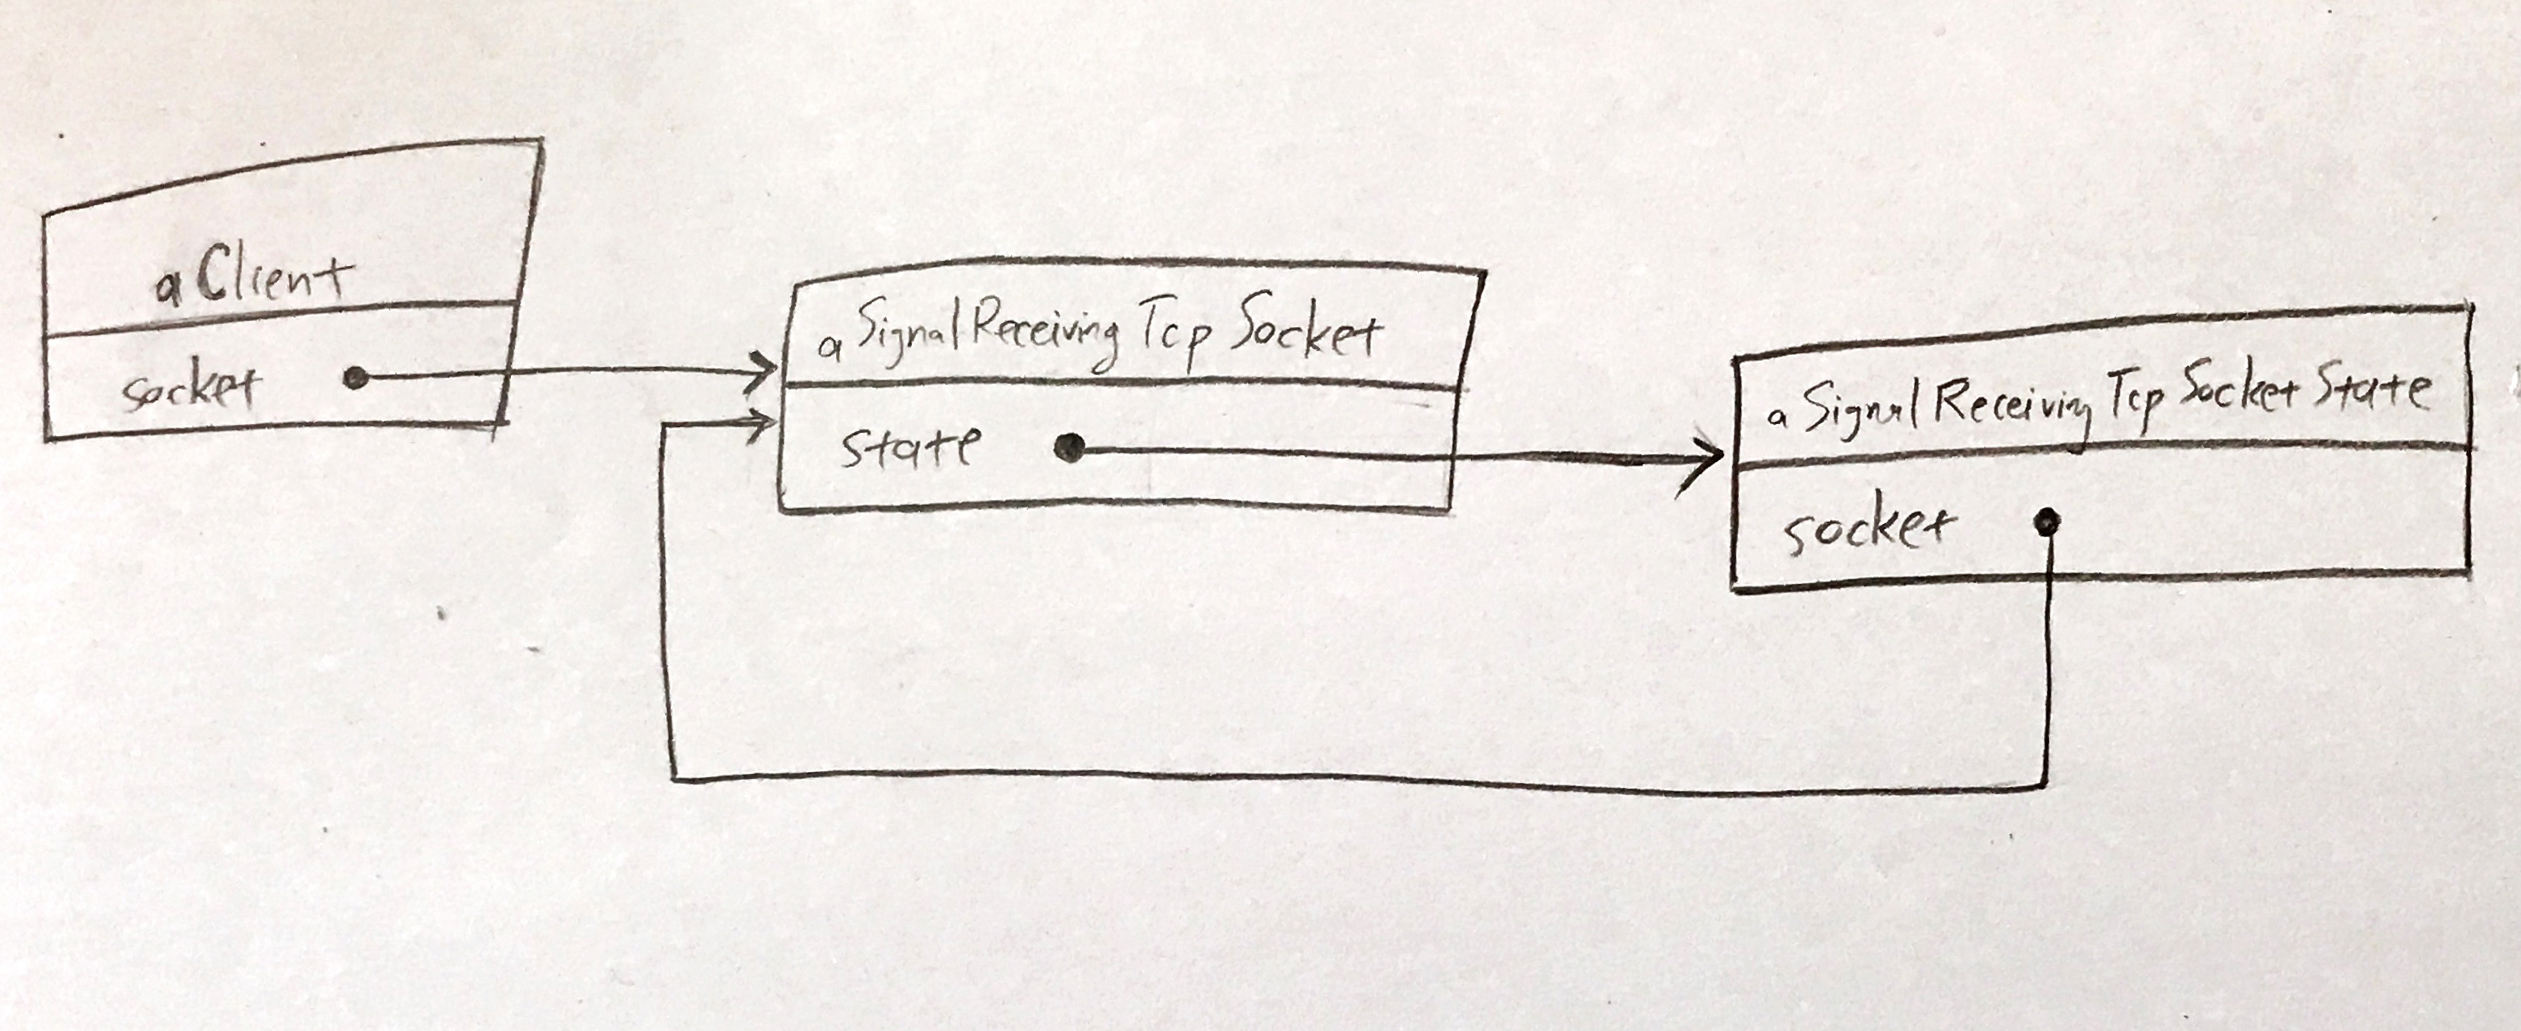 a Client
socket
a Signal Receiving Tcp Socket
state
a Signal Receiving Tcp Socket State
socket